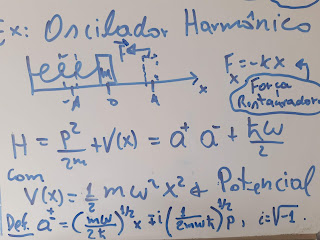 Ex: Oscilador Harmônico
F
m
F_x = -kx
-A 0 A x
Força
Restauradora
H = p²/2m + V(x) = a⁺ a⁻ + ħω/2
com
V(x) = 1/2 m ω² x² Potencial
Def. a^± = (mω/2ħ)^{1/2} x ∓ i (1/2mωħ)^{1/2} p, i = √-1.